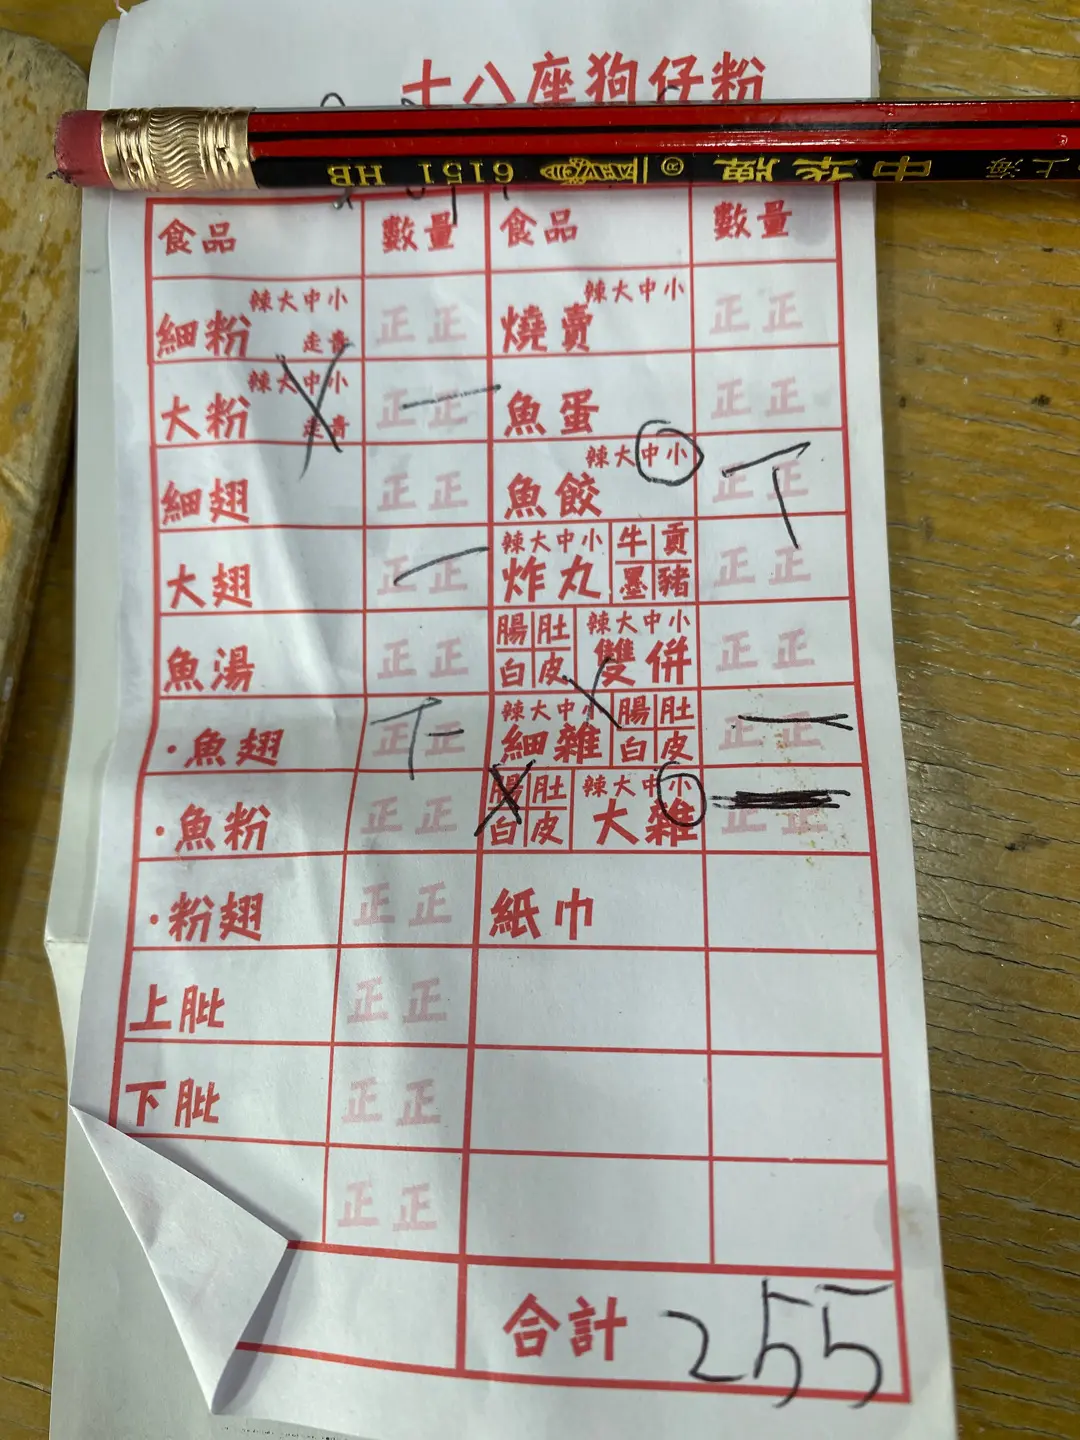 十八座狗仔粉
上海 中华牌 ® 6151 HB
食品 數量 食品 數量
細粉 辣大中小 走青 正正 燒賣 辣大中小 正正
大粉 辣大中小 走青 正正 一 魚蛋 正正
細翅 正正 魚餃 辣大中小 正正 丅
大翅 正正 一 炸丸 辣大中小 牛 貢 墨 豬 正正
魚湯 正正 腸 肚 白 皮 雙併 辣大中小 正正
·魚翅 正正 細雜 辣大中小 腸 肚 白 皮 正正 一
·魚粉 正正 腸 肚 白 皮 大雜 辣大中小 正正
·粉翅 正正 紙巾
上肶 正正
下肶 正正
正正
合計 255